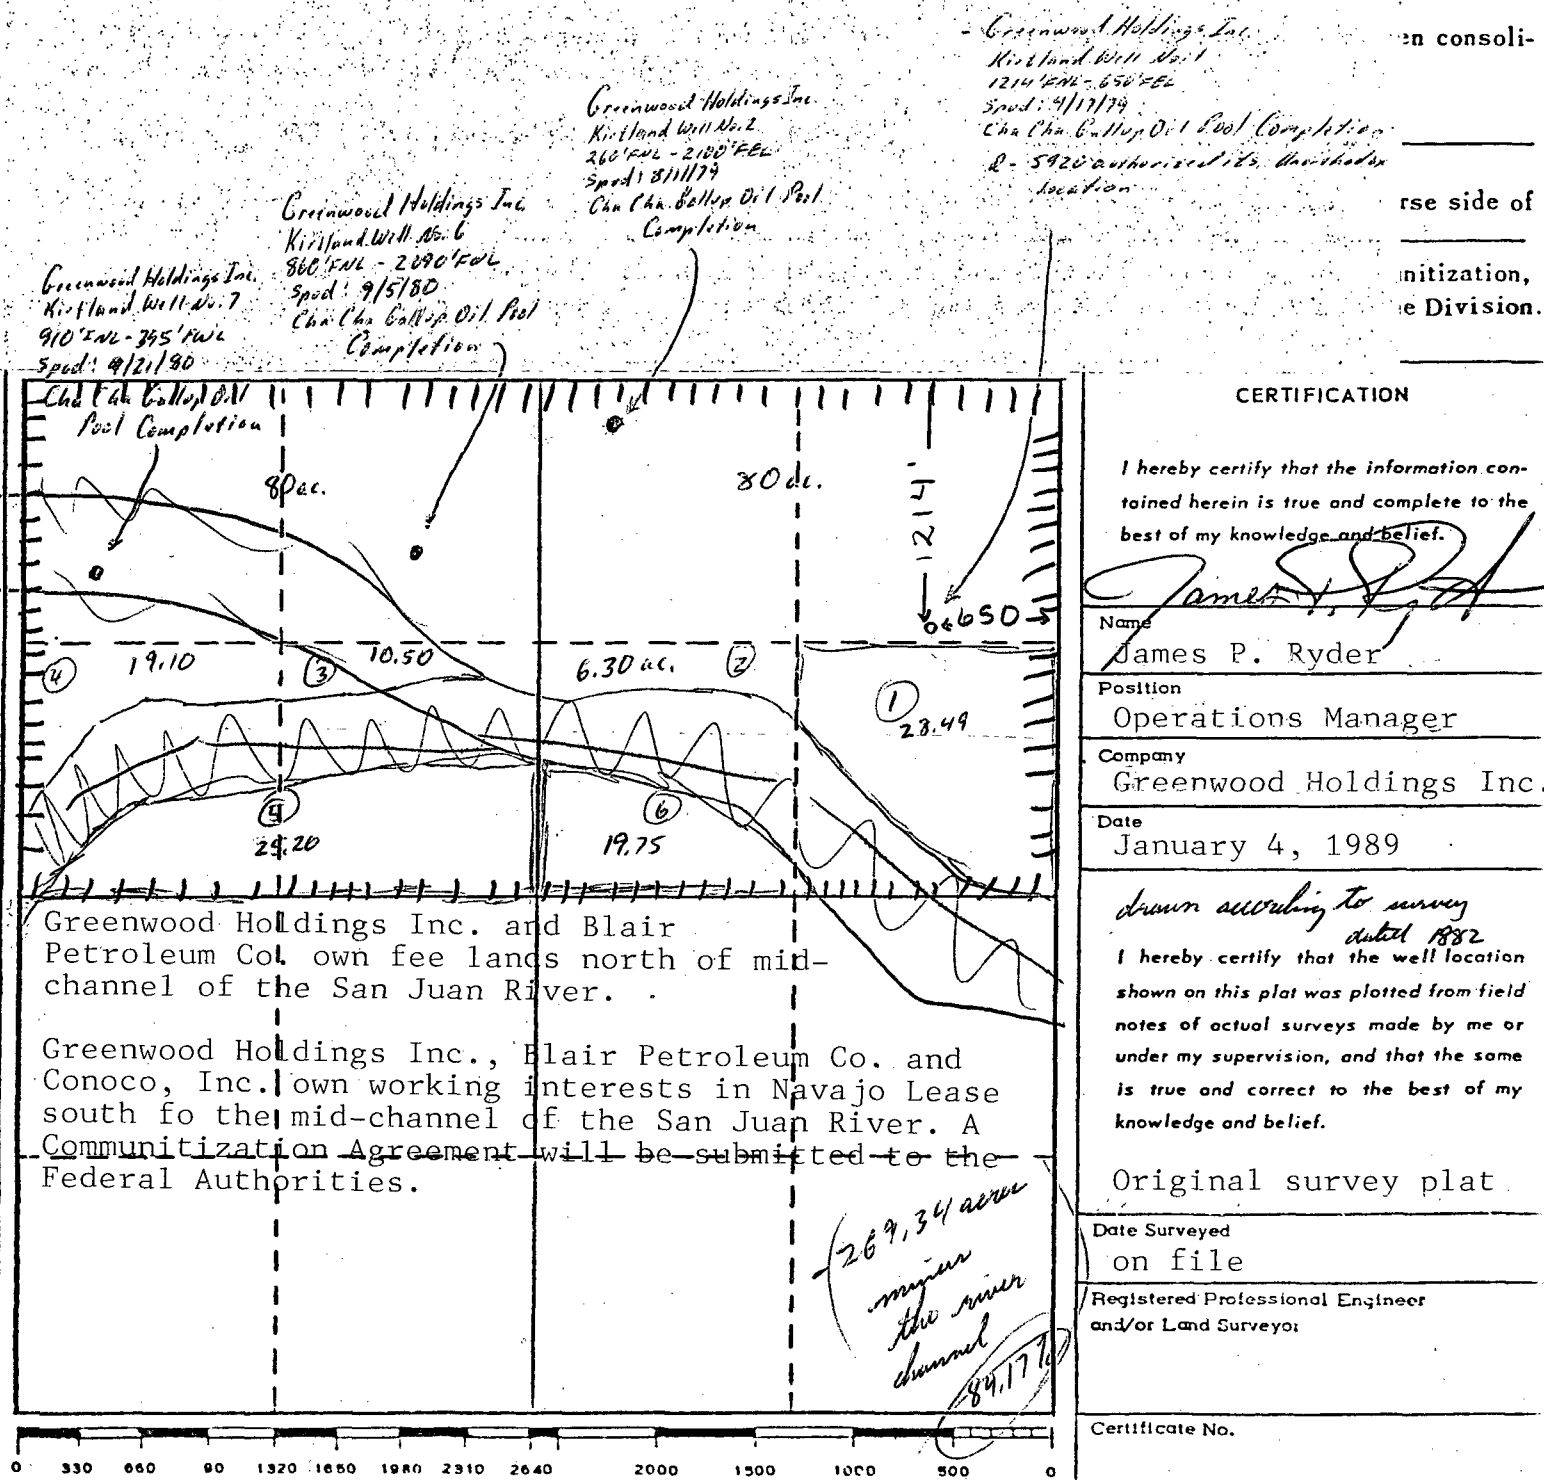 Greenwood Holdings Inc.
Kirtland Well No. 1
1214' FNL - 650' FEL
Spud: 4/17/79
Cha Cha Gallup Oil Pool Completion
R- 5920 authorized its Unorthodox
location
en consoli-
rse side of
nitization,
e Division.
Greenwood Holdings Inc.
Kirtland Well No. 2
260' FNL - 2100' FEL
Spud: 8/1/79
Cha Cha Gallup Oil Pool
Completion
Greenwood Holdings Inc.
Kirtland Well No. 6
860' FNL - 2090' FWL
Spud: 9/5/80
Cha Cha Gallup Oil Pool
Completion
Greenwood Holdings Inc.
Kirtland Well No. 7
910' FNL - 395' FWL
Spud: 9/21/80
Cha Cha Gallup Oil
Pool Completion
80 ac.
80 ac.
1214'
650
4
19.10
3
10.50
6.30 ac.
2
1
28.49
5
6
19.75
Greenwood Holdings Inc. and Blair
Petroleum Co. own fee lands north of mid-
channel of the San Juan River.
Greenwood Holdings Inc., Blair Petroleum Co. and
Conoco, Inc. own working interests in Navajo Lease
south fo the mid-channel of the San Juan River. A
Communitization Agreement will be submitted to the
Federal Authorities.
269.34 acres
minus
the river
channel
84.17%
0 330 660 90 1320 1650 1980 2310 2640 2000 1500 1000 500 0
CERTIFICATION
I hereby certify that the information con-
tained herein is true and complete to the
best of my knowledge and belief.
James P. Ryder
Name
James P. Ryder
Position
Operations Manager
Company
Greenwood Holdings Inc.
Date
January 4, 1989
drawn according to survey
dated 1882
I hereby certify that the well location
shown on this plat was plotted from field
notes of actual surveys made by me or
under my supervision, and that the same
is true and correct to the best of my
knowledge and belief.
Original survey plat
Date Surveyed
on file
Registered Professional Engineer
and/or Land Surveyor
Certificate No.